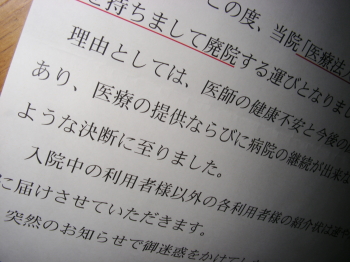 この度、当院「医療法
を持ちまして廃院する運びとなりまし
理由としては、医師の健康不安と今後の
あり、医療の提供ならびに病院の継続が出来な
ような決断に至りました。
入院中の利用者様以外の各利用者様の紹介状は速や
に届けさせていただきます。
突然のお知らせで御迷惑をかけてし